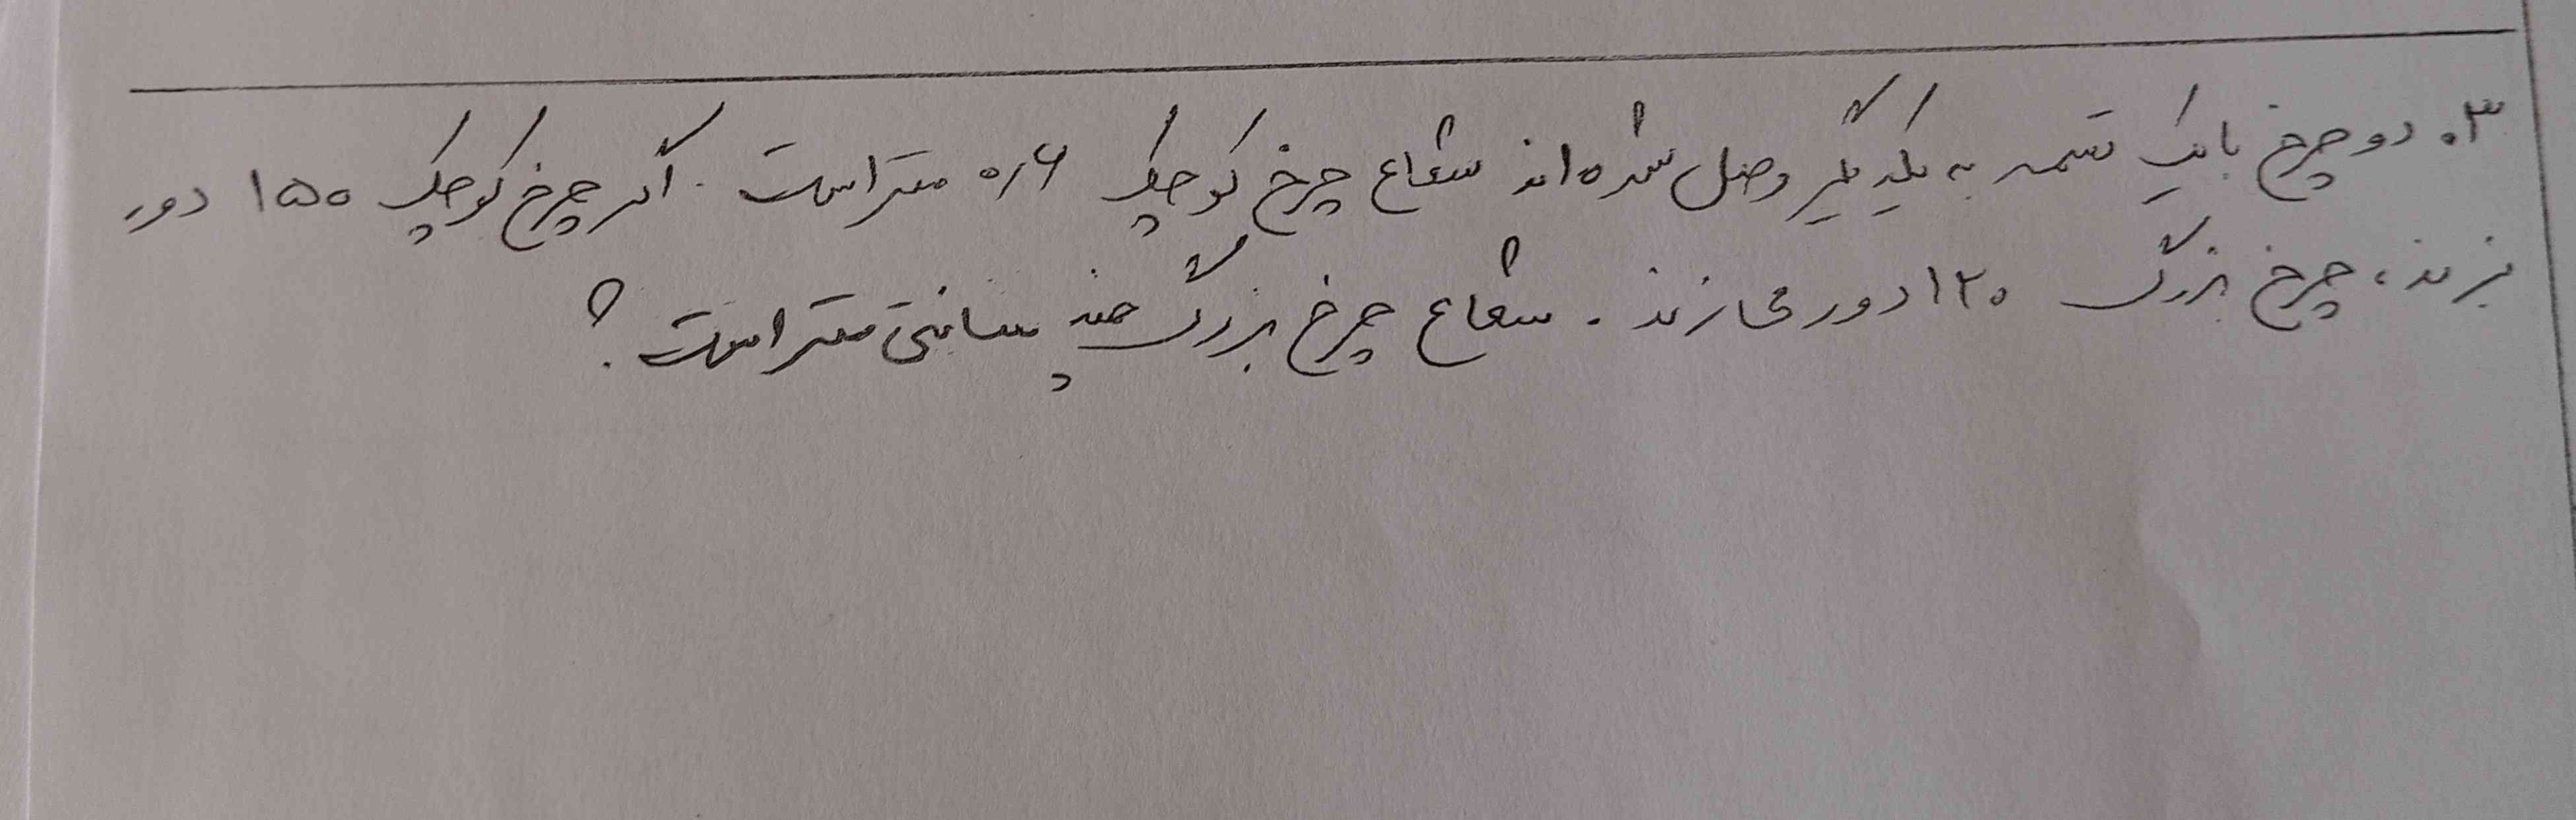 ۳. دو چرخ با یک تسمه به یکدیگر وصل شده‌اند شعاع چرخ کوچک ۰/۶ متر است. اگر چرخ کوچک ۱۵۰ دور
بزند، چرخ بزرگ ۱۲۰ دور می‌زند. شعاع چرخ بزرگ چند سانتی متر است؟